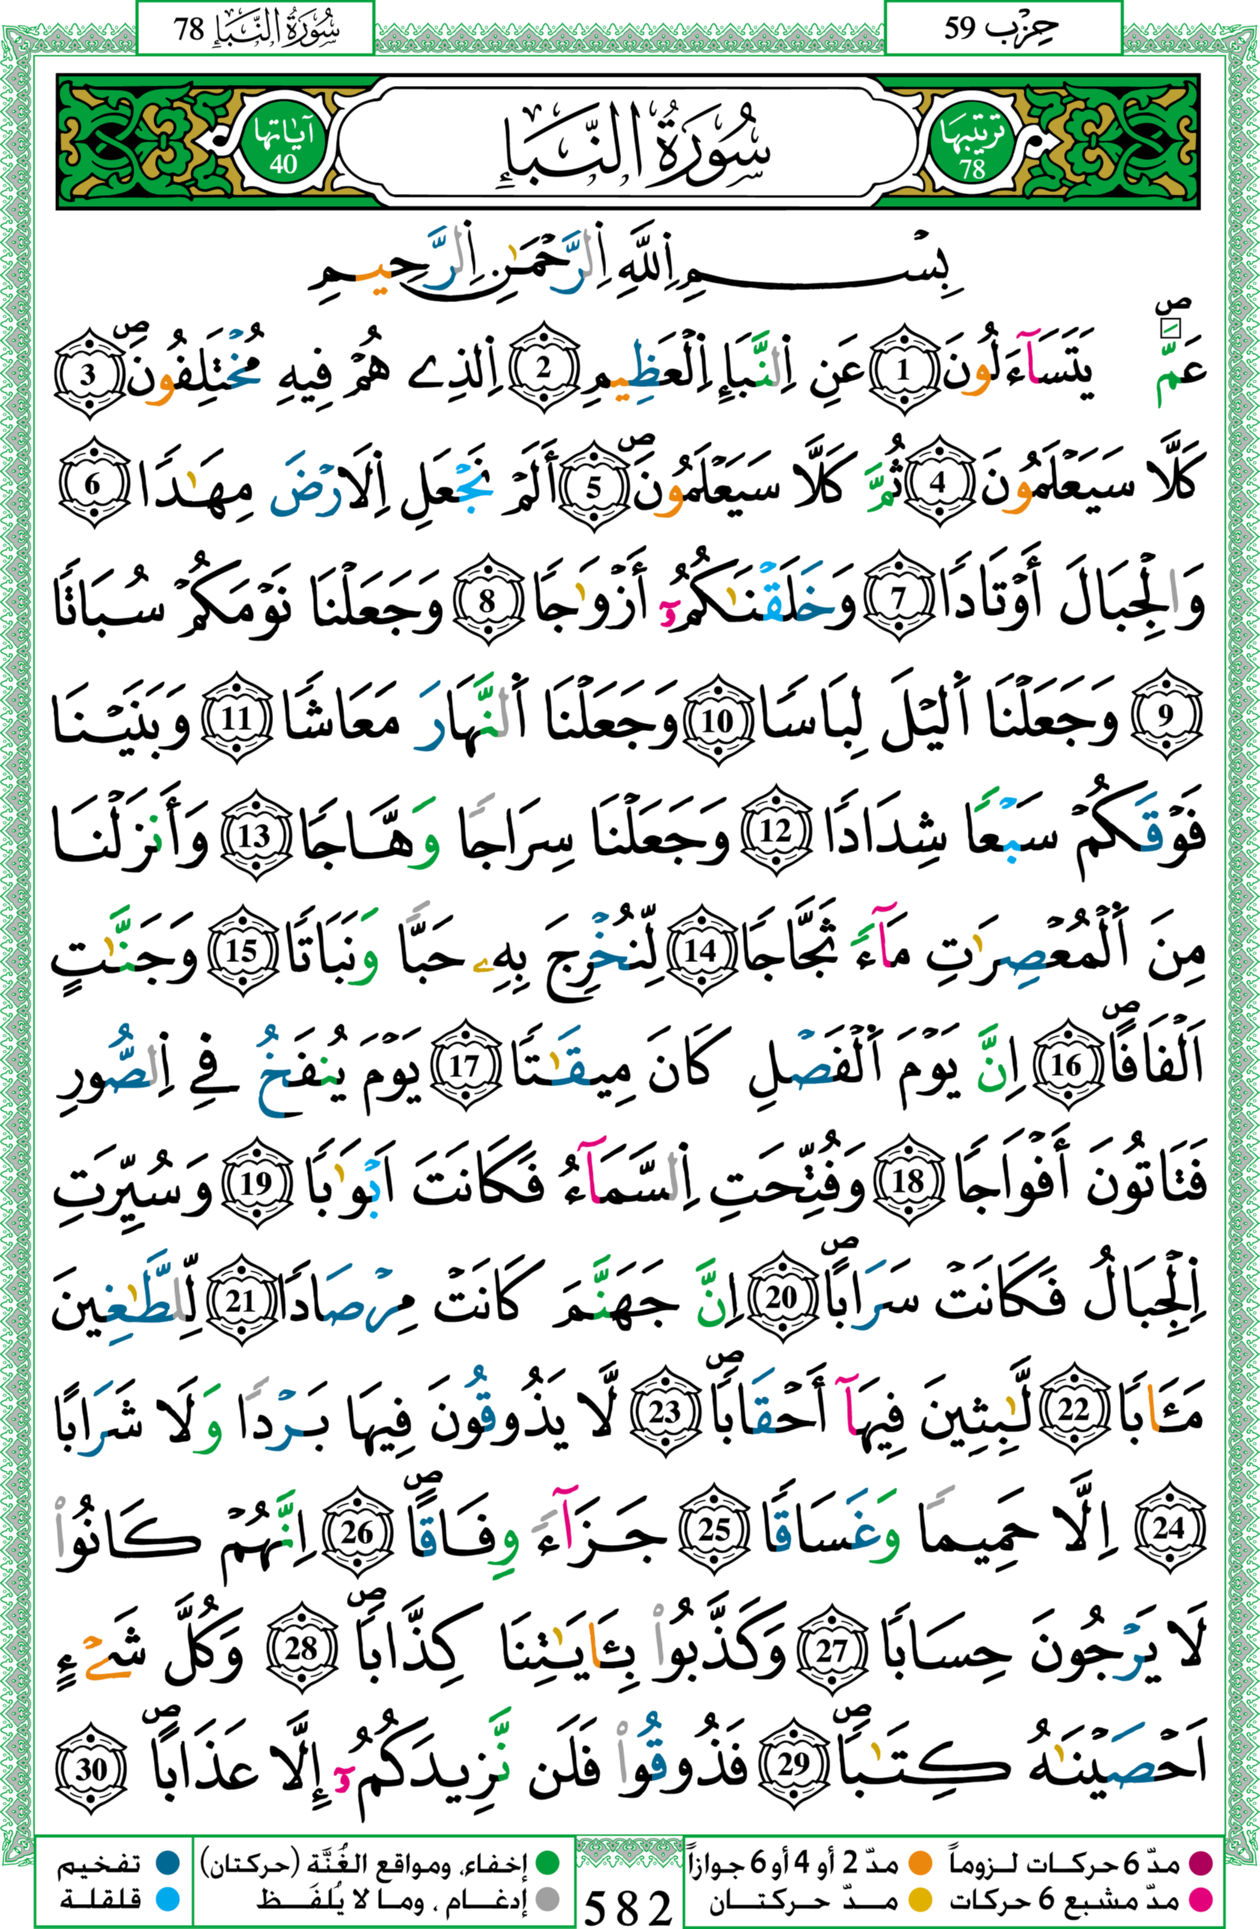 حِزْب 59
سُورَةُ النَّبَإِ 78
تَرتيبُهَا 78
سُورَةُ النَّبَإِ
آيَاتهَا 40
بِسْمِ اِللَّهِ اِلرَّحْمَٰنِ اِلرَّحِيمِ
عَمَّ يَتَسَآءَلُونَ 1 عَنِ اِلنَّبَإِ اِلْعَظِيمِ 2 اِلذِے هُمْ فِيهِ مُخْتَلِفُونَ ص 3
كَلَّا سَيَعْلَمُونَ 4 ثُمَّ كَلَّا سَيَعْلَمُونَ ص 5 أَلَمْ نَجْعَلِ اِلَارْضَ مِهَٰدًا 6
وَالْجِبَالَ أَوْتَادًا 7 وَخَلَقْنَٰكُمُۥٓ أَزْوَٰجًا 8 وَجَعَلْنَا نَوْمَكُمْ سُبَاتًا
9 وَجَعَلْنَا اَلَيْلَ لِبَاسًا 10 وَجَعَلْنَا اَلنَّهَارَ مَعَاشًا 11 وَبَنَيْنَا
فَوْقَكُمْ سَبْعًا شِدَادًا 12 وَجَعَلْنَا سِرَاجًا وَهَّاجًا 13 وَأَنزَلْنَا
مِنَ اَلْمُعْصِرَٰتِ مَآءً ثَجَّاجًا 14 لِّنُخْرِجَ بِهِۦ حَبًّا وَنَبَاتًا 15 وَجَنَّٰتٍ
اَلْفَافًا ص 16 اِنَّ يَوْمَ اَلْفَصْلِ كَانَ مِيقَٰتًا 17 يَوْمَ يُنفَخُ فِے اِلصُّورِ
فَتَاتُونَ أَفْوَاجًا 18 وَفُتِّحَتِ اِلسَّمَآءُ فَكَانَتَ اَبْوَٰبًا 19 وَسُيِّرَتِ
اِلْجِبَالُ فَكَانَتْ سَرَابًا ص 20 اِنَّ جَهَنَّمَ كَانَتْ مِرْصَادًا 21 لِّلطَّٰغِينَ
مَـَٔابًا 22 لَّٰبِثِينَ فِيهَآ أَحْقَابًا ص 23 لَّا يَذُوقُونَ فِيهَا بَرْدًا وَلَا شَرَابًا
24 اِلَّا حَمِيمًا وَغَسَاقًا 25 جَزَآءً وِفَاقًا ص 26 اِنَّهُمْ كَانُوا۟
لَا يَرْجُونَ حِسَابًا 27 وَكَذَّبُوا۟ بِـَٔايَٰتِنَا كِذَّابًا ص 28 وَكُلَّ شَےْءٍ
اَحْصَيْنَٰهُ كِتَٰبًا ص 29 فَذُوقُوا۟ فَلَن نَّزِيدَكُمُۥٓ إِلَّا عَذَابًا ص 30
مدّ 6 حركات لـزوماً مدّ 2 أو 4 أو 6 جوازاً
مدّ مشبع 6 حركات مـدّ حركتـان
582
إخفاء، ومواقع الغُنَّة (حركتان)
إدغـام ، ومـا لا يُلفَـظ
تفخيم
قلقلة